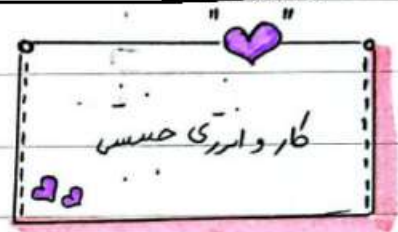 کار و انرژی جنبشی